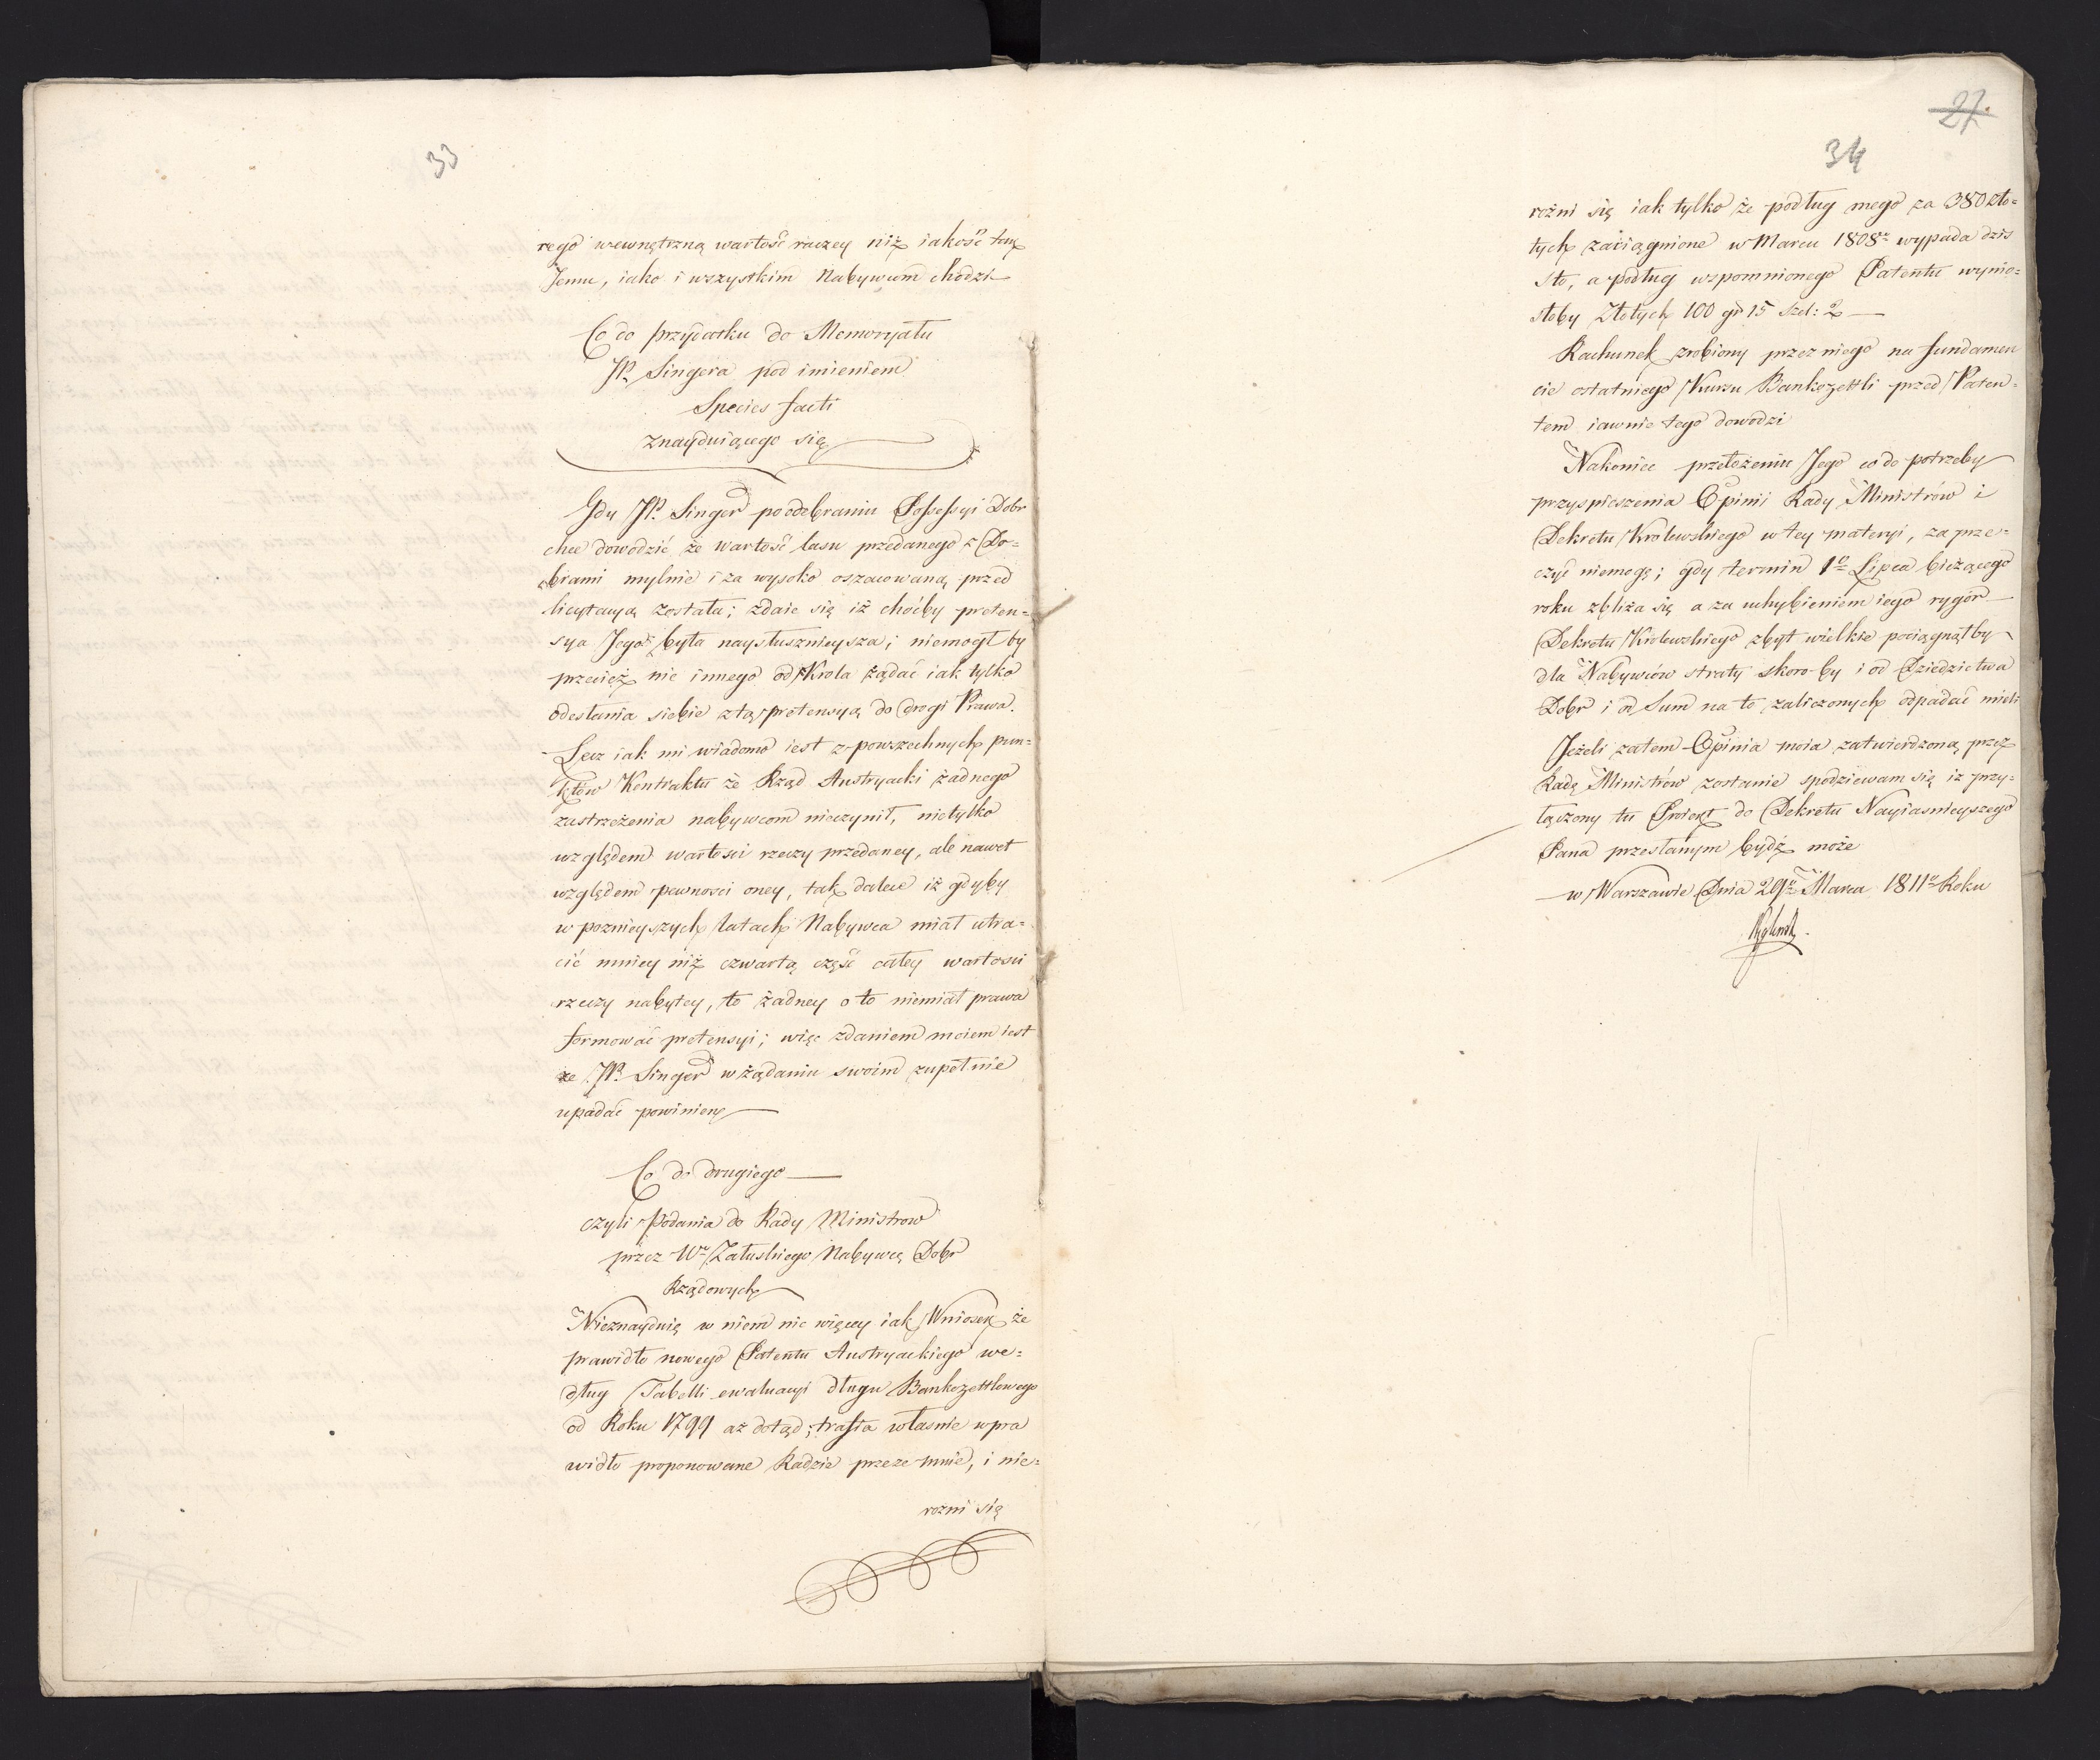 33
rego wewnętrzną wartość raczey niż iakość tey
Jemu, iako i wszystkim Nabywcom chodzi
Co do przydatku do Memoryału
JP. Singera pod imieniem
Species facti
znayduiącego się
Gdy JP. Singer po odebraniu Possessyi Dobr
chce dowodzić że wartość lasu przedanego z Do=
brami mylnie i za wysoko oszacowaną przed
licytacyą została; zdaie się iż choćby preten=
sya Jego była naysłusznieysza; niemogł by
przecież nic innego od Krola żądać iak tylko
odesłania siebie z tą pretensyą do drogi Prawa.
Lecz iak mi wiadomo iest z powszechnych pun=
któw Kontraktu że Rząd Austryacki żadnego
zastrzeżenia nabywcom nieczynił, nietylko
względem wartości rzeczy przedaney, ale nawet
względem pewnosci oney, tak dalece iż gdyby
w poznieyszych latach Nabywca miał utra=
cić mniey niż czwartą część całey wartosci
rzeczy nabytey, to żadney o to niemiał prawa
formować pretensyi; więc zdaniem moiem iest
że JP. Singer w żądaniu swoim zupełnie
upadać powinien
Co do drugiego
czyli Podania do Rady Ministrow
przez Wo Załuskiego Nabywcę Dobr
Rządowych
Nieznayduię w niem nic więcey iak Wniosek że
prawidło nowego Patentu Austryackiego we=
dług Tabelli ewaluacyi długu Bankozettlowego
od Roku 1799 aż dotąd; trafia własnie w pra
widło proponowane Radzie przeze mnie, i nie=
rozni się
27.
34
rożni się iak tylko że podług mego za 380 zło=
tych zaciągnione w Marcu 1808o wypada dzis
sto, a podług wspomnionego Patentu wynio=
słoby Złotych 100 gr 15 Szel: 2
Rachunek zrobiony przez niego na fundamen
cie ostatniego Kursu Bankozettli przed Paten=
tem iawnie tego dowodzi
Nakoniec przełożeniu Jego co do potrzeby
przyspieszenia Opinii Rady Ministrów i
Dekretu Krolewskiego w tey materyi, zaprze=
czyć niemogę; gdy termin 1o Lipca bieżącego
roku zbliża się a za uchybieniem iego rygor
Dekretu Krolewskiego zbyt wielkie pociągnąłby
dla Nabywców straty skoro-by i od Dziedzictwa
Dobr i od Sum na to zaliczonych odpadać mieli
Jeżeli zatem Opinia moia zatwierdzoną przez
Radę Ministrów zostanie spodziewam się iż przy=
łączony tu Proiekt do Dekretu Nayiasnieyszego
Pana przesłanym bydź może
w Warszawie Dnia 29o Marca 1811o Roku